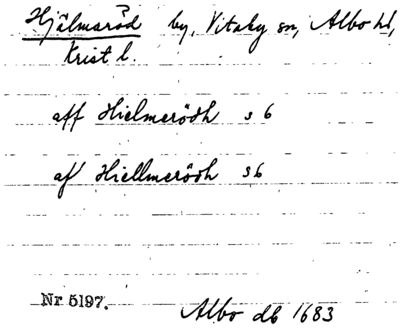 Hjälmaröd by, Vitaby sn, Albo hd,
Krist l.
aff Hielmerödh s 6
af Hiellmerödh s 6
Nr 5197.
Albo db 1683